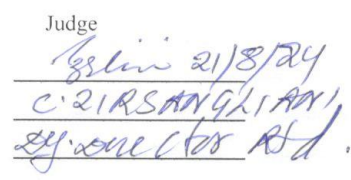 Judge
21/8/24
C. ZIRSANGLIANI
Dy. Director Rtd.